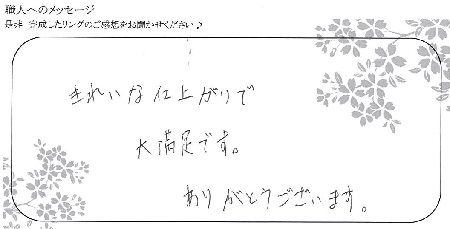 職人へのメッセージ
是非 完成したリングのご感想をお聞かせください♪
きれいな仕上がりで
大満足です。
ありがとうございます。